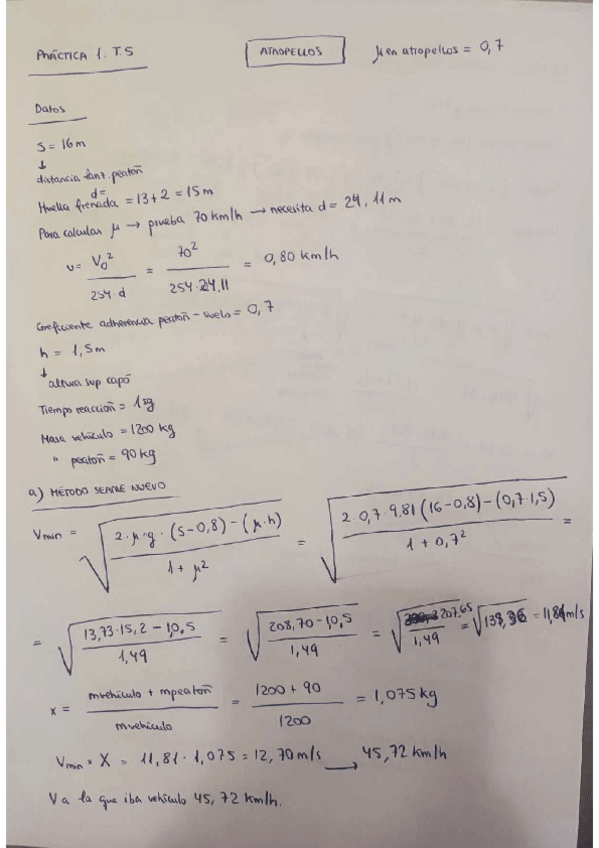 PRÁCTICA 1. T.5
ATROPELLOS
μ en atropellos = 0,7
Datos
S = 16m
↓
distancia lanz. peatón
Huella frenada d= = 13 + 2 = 15 m
Para calcular μ → prueba 70 km/h → necesita d = 24,11 m
υ = V₀² / 254·d = 70² / 254·24,11 = 0,80 km/h
Coeficiente adherencia peatón - suelo = 0,7
h = 1,5m
↓ altura sup capó
Tiempo reacción = 1 sg
Masa vehículo = 1200 kg
" peatón = 90 kg
a) MÉTODO SEARLE NUEVO
Vmin = √(2·μ·g·(S-0,8) - (μ·h) / 1 + μ²) = √(2·0,7·9,81 (16-0,8) - (0,7·1,5) / 1 + 0,7²) =
= √(13,73·15,2 - 10,5 / 1,49) = √(208,70 - 10,5 / 1,49) = √(207,65 / 1,49) = √139,36 = 11,81 m/s
x = mvehículo + mpeatón / mvehículo = 1200 + 90 / 1200 = 1,075 kg
Vmin × X = 11,81 · 1,075 = 12,70 m/s → 45,72 km/h
V a la que iba vehículo 45,72 km/h.